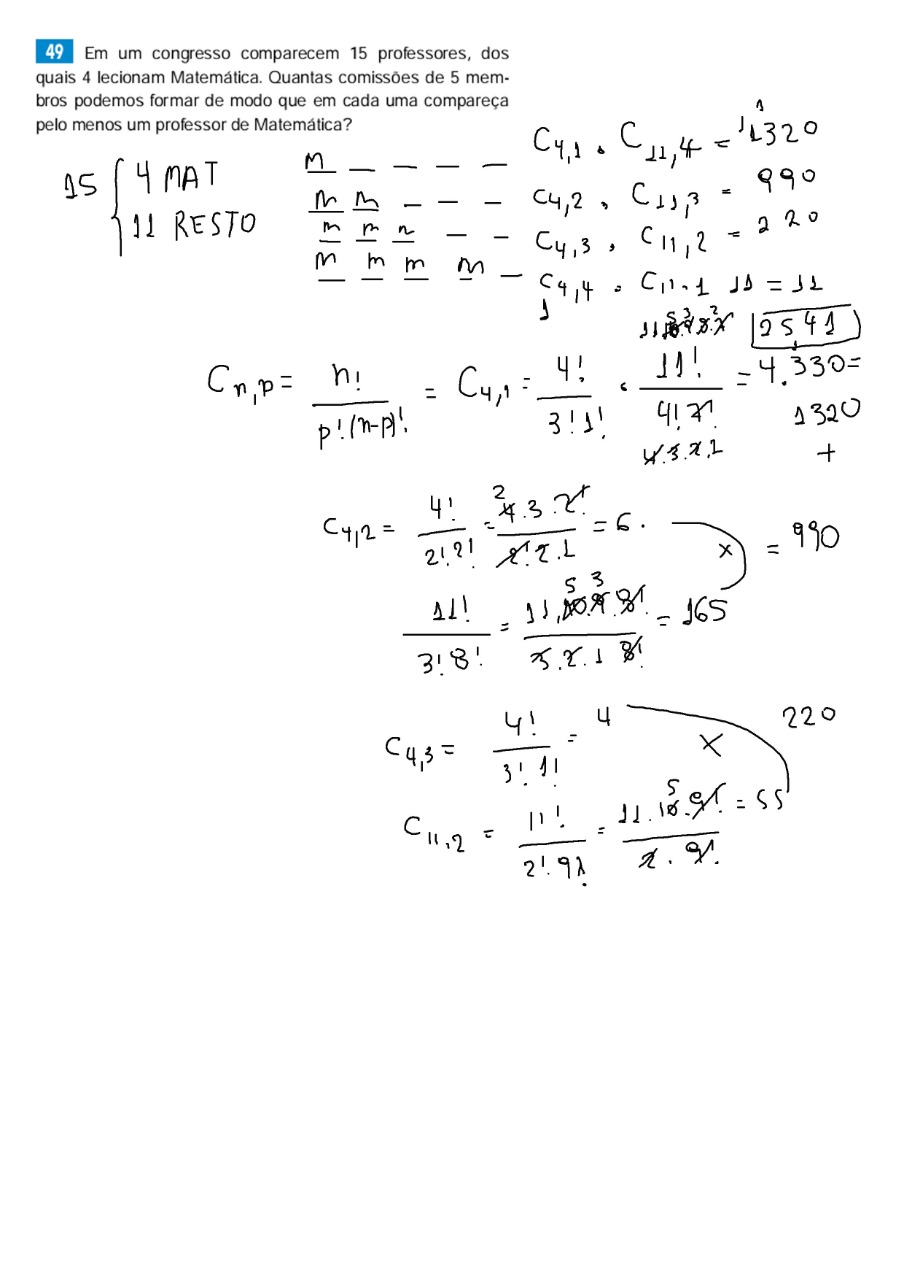 49 Em um congresso comparecem 15 professores, dos
quais 4 lecionam Matemática. Quantas comissões de 5 mem-
bros podemos formar de modo que em cada uma compareça
pelo menos um professor de Matemática?
15 { 4 MAT
11 RESTO
m _ _ _ _ C4,1 . C11,4 = 1320
m m _ _ _ C4,2 . C11,3 = 990
m m m _ _ C4,3 . C11,2 = 220
m m m m _ C4,4 . C11,1 11 = 11
1
2541
11.10.9.8.7!
Cn,p = n! / p!(n-p)! = C4,1 = 4! / 3!1! . 11! / 4!7! = 4.330 =
4.3.2.1
1320
+
C4,2 = 4! / 2!2! = 4.3.2! / 2!2.1 = 6 . x = 990
11! / 3!8! = 11.10.9.8! / 3.2.1 8! = 165
C4,3 = 4! / 3!1! = 4 x 220
C11,2 = 11! / 2!9! = 11.10.9! / 2.9! = 55